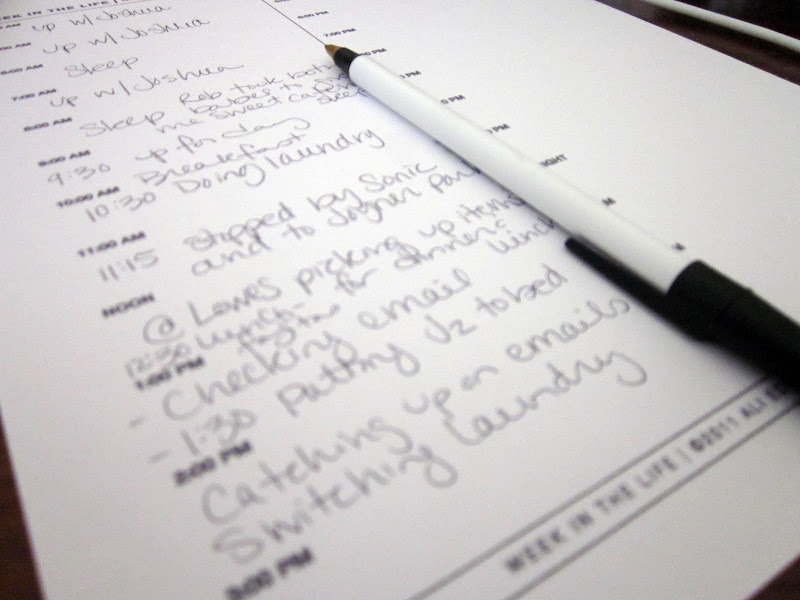 WEEK IN THE LIFE |
up w/ Joshua
up w/ Joshua
6:00 AM
Sleep
7:00 AM
up w/ Joshua
8:00 AM
Sleep Rob took both
babes to
me sweet
Sleep
9:00 AM
9:30 up for day
Breakfast
10:00 AM
10:30 Doing laundry
11:00 AM
11:15 Stopped by Sonic
and to Joyner Park
NOON
@ Lowes picking up items
for dinner &
12:30 lunch - lunch
1:00 PM
- Checking email
- 1:30 putting J2 to bed
2:00 PM
Catching up on emails
Switching laundry
3:00 PM
6:00 PM
7:00 PM
PM
PM
PM
NIGHT
M
M
WEEK IN THE LIFE | ©2011 ALI